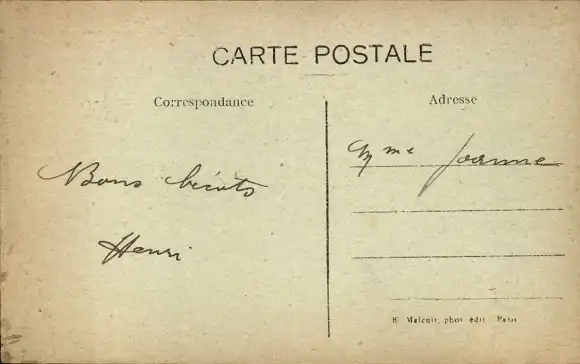 CARTE POSTALE
Correspondance
Adresse
Bons bécots
Henri
Mme Joanne
E. Malcuit, phot. édit. Paris